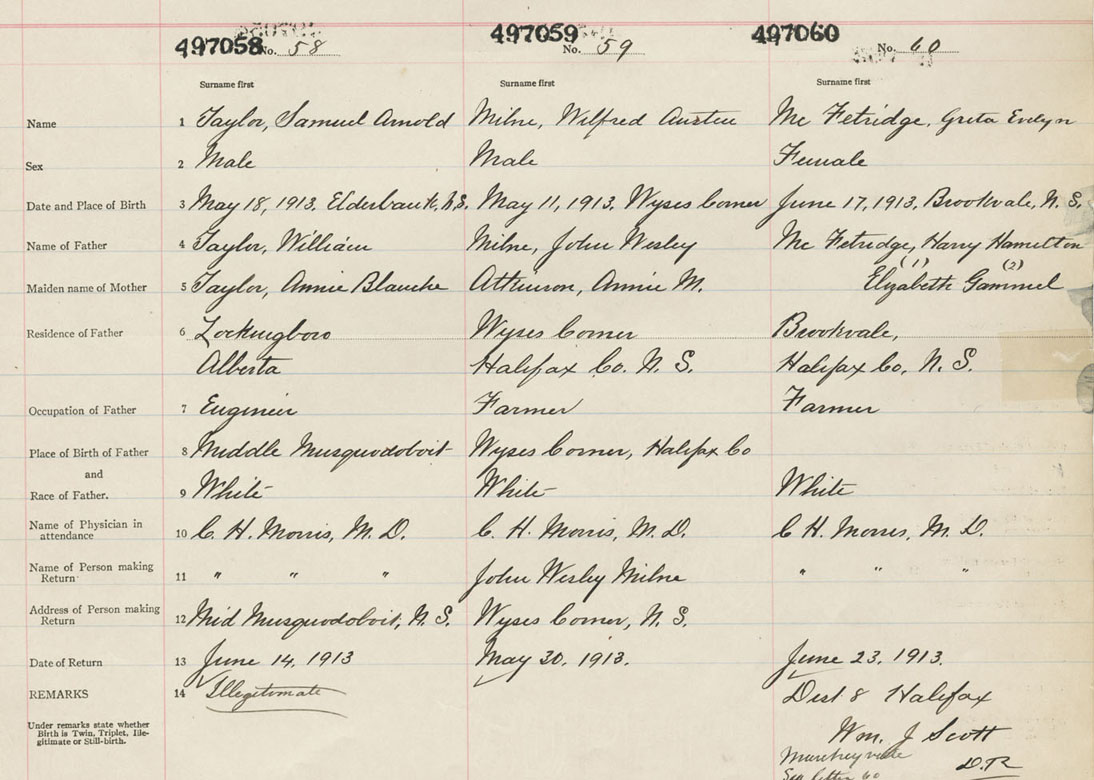 497058 No. 58 497059 No. 59 497060 No. 60
Surname first Surname first Surname first
Name 1 Taylor, Samuel Arnold Milne, Wilfred Austen Mc Fetridge, Greta Evelyn
Sex 2 Male Male Female
Date and Place of Birth 3 May 18, 1913. Elderbank, N.S. May 11, 1913. Wyses Corner June 17, 1913, Brookvale, N. S.
Name of Father 4 Taylor, William Milne, John Wesley Mc Fetridge, Harry Hamilton
(1) (2)
Maiden name of Mother 5 Taylor, Annie Blanche Atkinson, Annie M. Elizabeth Gammel
Residence of Father 6 Wyses Corner Brookvale,
Alberta Halifax Co. N. S. Halifax Co, N. S.
Occupation of Father 7 Engineer Farmer Farmer
Place of Birth of Father 8 Middle Musquodoboit Wyses Corner, Halifax Co
and
Race of Father. 9 White White White
Name of Physician in
attendance 10 C. H. Morris, M. D. C. H. Morris, M. D. C H. Morris, M. D.
Name of Person making
Return 11 " " " John Wesley Milne " " "
Address of Person making
Return 12 Mid Musquodoboit, N. S. Wyses Corner, N. S.
Date of Return 13 June 14, 1913 May 30, 1913. June 23, 1913.
REMARKS 14 Illegitimate Dist 8 Halifax
Under remarks state whether
Birth is Twin, Triplet, Ille-
gitimate or Still-birth.
Wm. J Scott
D.R